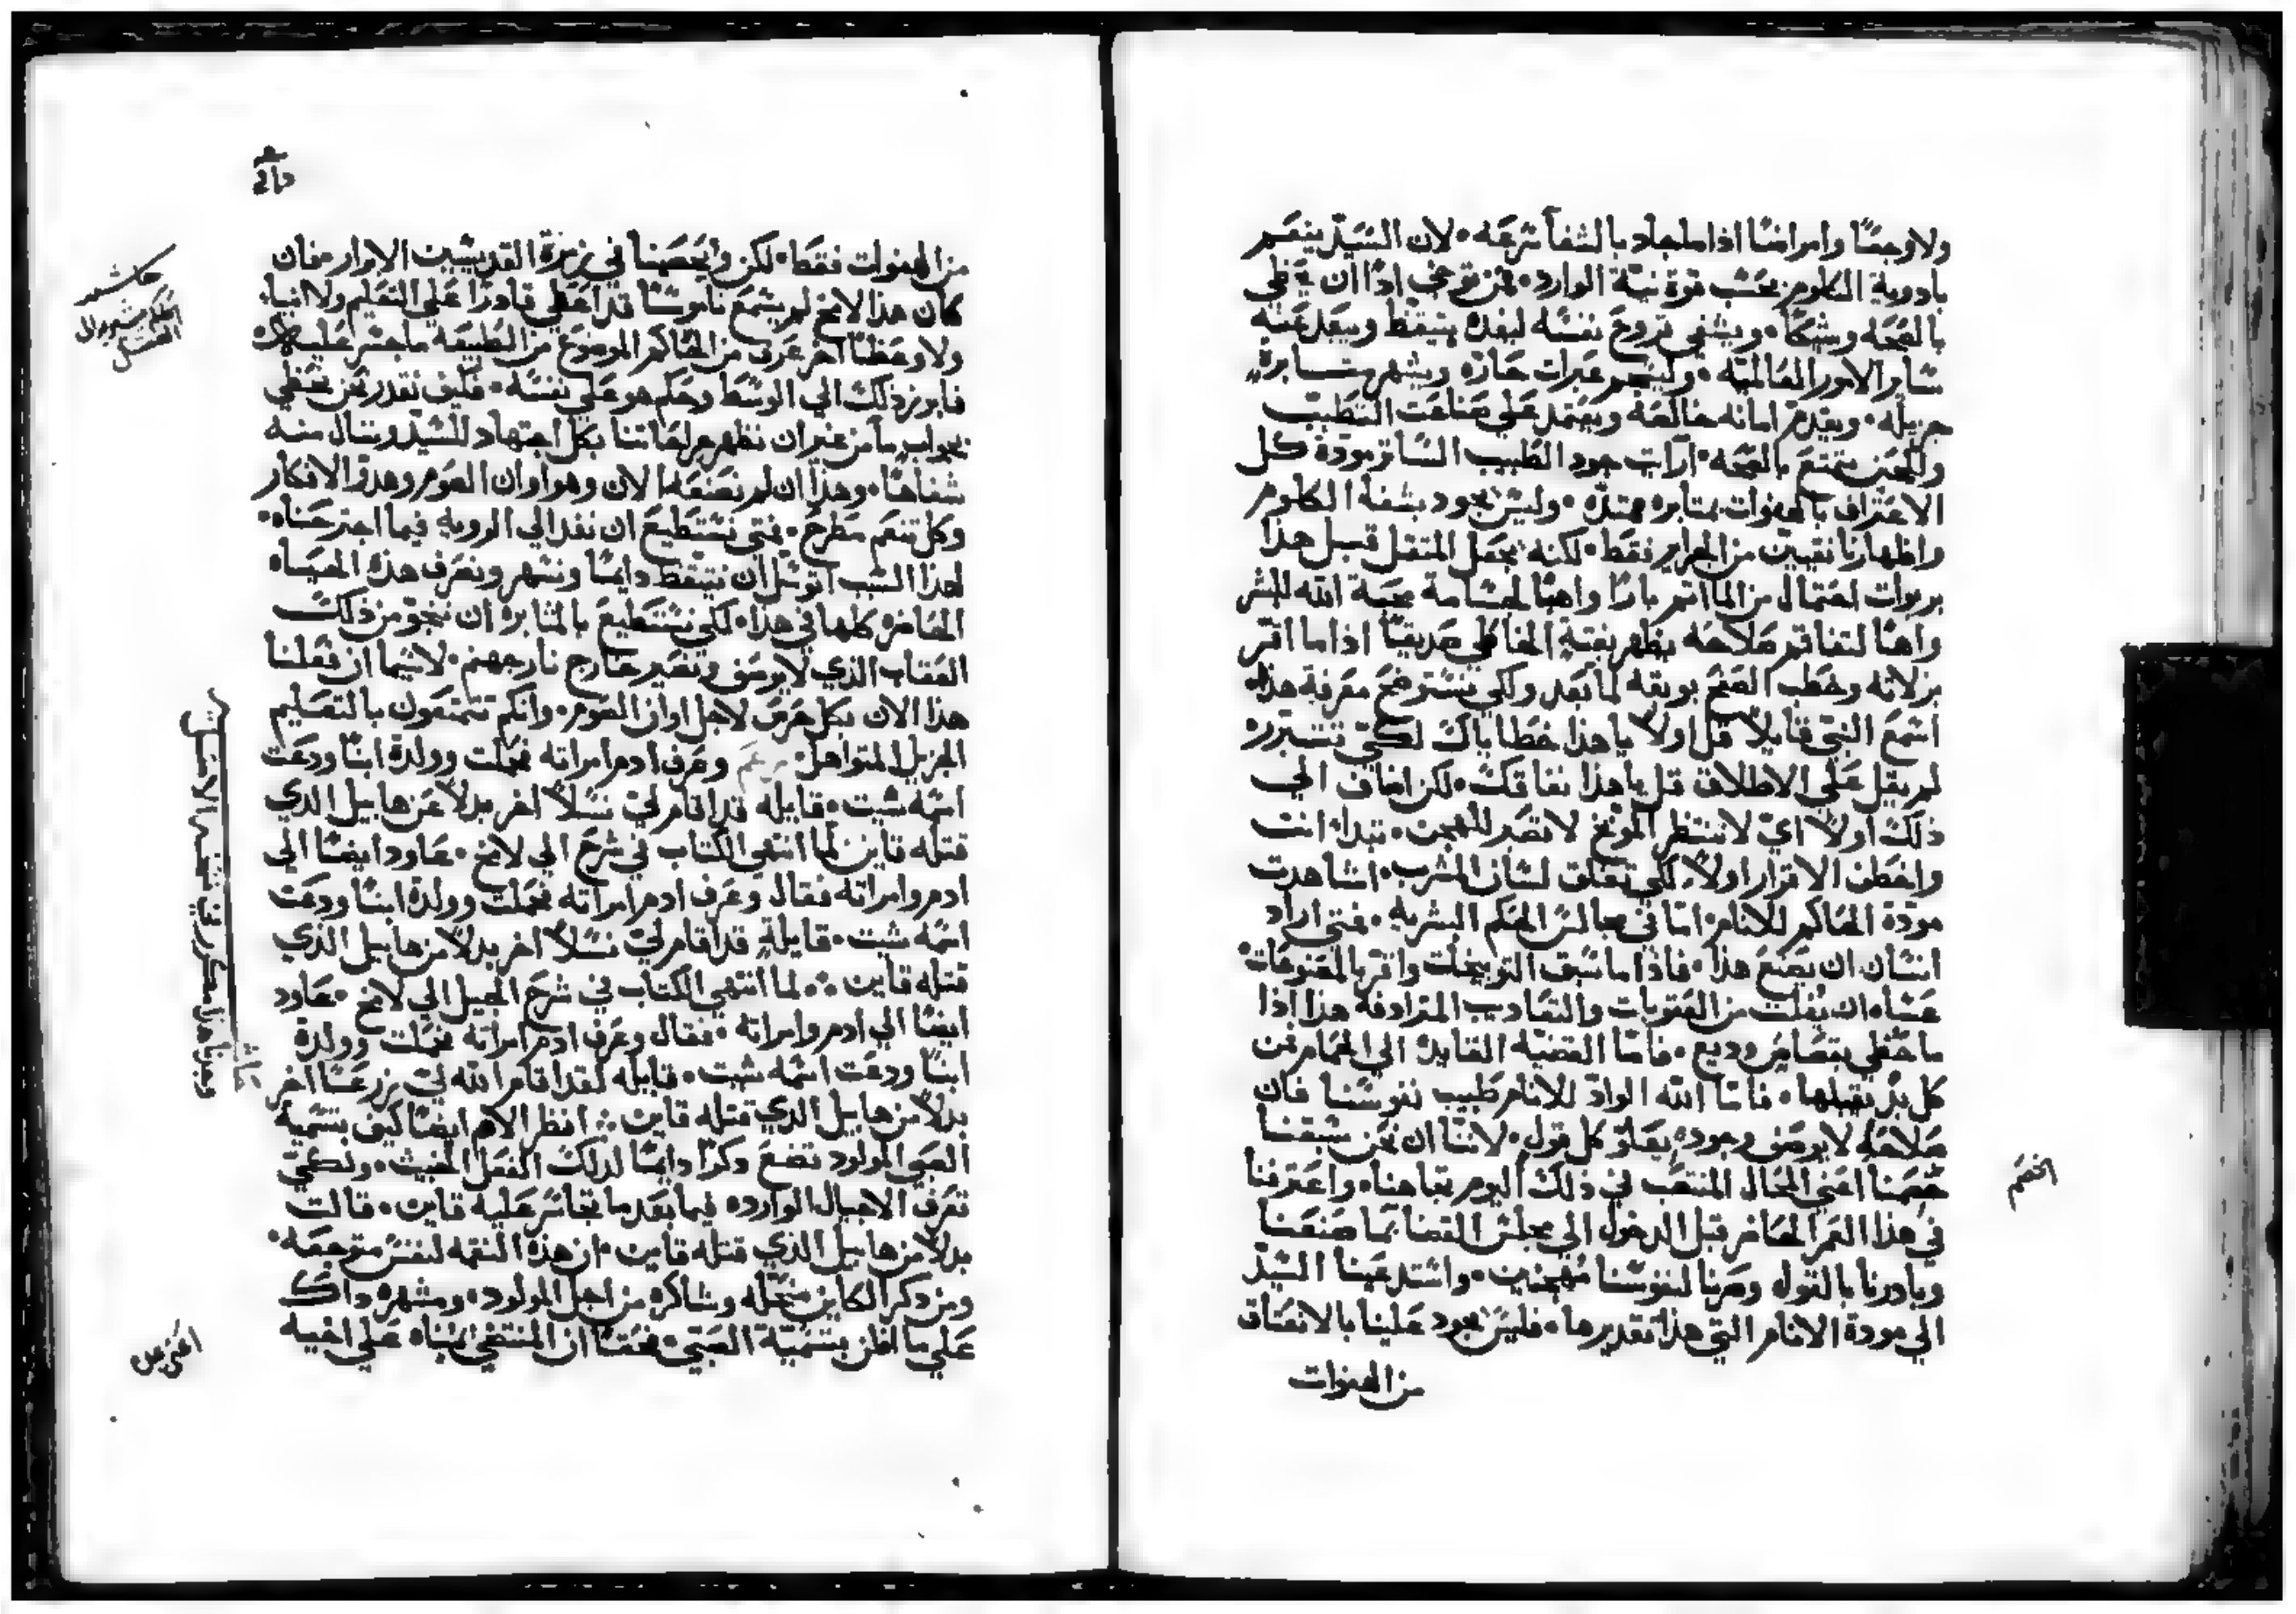 ولاوجعًا وامراضًا اذا ماجاد بالشفآ شرعه • لان السّيّد ينعم
بادوية الكلوم بحسب قوة نيّة الوارد • فمن توخى اذًا ان يحظى
بالصّحه وشيكًا • ويشفي قروح نفسه ليغدو بتيقظ ويبعد عنه
سَاير الامور العالميّه • وليسجم عبرات حارّه ويشهر مثابرة
جزيله • ويقدم امانه خالصَه ويعتمد على صناعت الطبيب
وللحين يتمتع بالصحه • ارآيت جود الطبيب السّاتر مودة كل
الاعتراف بالهفوات بمثابره ممتدّه • وليس يجود بشفآ الكلوم
واظهارنا نقيين من الجراير فقط • لكنه يجعل المثقل قبل هذا
بربوات احتمال من المآثم بارًا واهبًا لجسامة محبة الله للبشر
واهبًا لتفاقم صَلاحَه يظهر بغتةٍ الخاطي صديقًا اذا ما اقر
بزلاته وخطب الصّفح بوبقه لما بَعد ولكي نسترضح معرفة هذا
اسمع النبي قايلاً قل اولاً يا هذا خطاياك لكيّ تتبرر
لم يقل على الاطلاق قل يا هذا نفاقك • لكن اضاف الي
ذلك اولاً اي لا تنتظر الموبّخ لا تصَبر للمهجن • تبدا انت
واخطن الاقرار اولاً • لكي تغلق لسَان المثرب • اشاهدت
مودة الحاكم للانام • امّا في مجالس الحكم البشريه • فمتى اراد
انسَان ان يصنع هذا • فاذا ما سبق التوبيخات واقر بالمصنوعات
عسَاه ان يفلت من العقوبات والتعاديب المترادفه هذا اذا
ما حظى بقاض وديع • فامّا القضيّه القايده الي الحمام فمن
كل بُد يقبلها • فامّا الله الوادّ للانام طبيب نفوسنا فان
صَلاحَه لا يوصَف وجوده يعلو كل قول • لانّنا ان نحن سبقنا
خصمنا اعني المحال المنتصب في ذلك اليوم تجاهنا • واعترفنا
في هذا العمر الحاضر قبل الدخول الي مجلس القضا بما صَنعنا
وبادرنا بالقول وصَرنا لنفوسنا مُهجنين • واستدعينا السّيد
الي مودة الانام التي هذا تقديرها • فليس يجود علينا بالانعتاق
من الهفوات
من الهفوات فقط • لكن ويحصَينا في زمرة القديسين الابرار • فان
كان هذا لامخ لم يسمع ناموسًا قد اعطي قادرًا على التعليم ولا انبيا
ولا وعظًا اخر عرف من الحاكم الموضوع من الطبيعه ما جسر عليه
فابرز ذلك الي الوسَط وحكم هو على نفسه • فكيف نقدر نحن نحظي
بجواب مآ من غير ان نظهر جراحاتنا بكل اجتهاد للسّيد وننال منه
شفاها • وهذا ان لم نصنعه الان وهو اوان الصوم وهدو الافكار
وكل تنعم مطرح • فمتى نستطيع ان نغدا الي الرويه فيما اجترحناه •
لهذا السّبب اتوسّل ان نتيقظ دايمًا ونسهر ونصرف هذه الحياه
الحاضره كلها في هذا • لكي نستطيع بالمثابره ان ننجو من ذلك
العقاب الذي لا يوصَف ونصير خارج نار جهنم • لا سيما ان فعلنا
هذا الان بكل حرص لاجل اوان الصوم • وانكم تتمتعون بالتعليم
الجزيل المتواصل • وعرف ادم امراته فحبلت وولدة ابنًا ودعت
اسمه شيت • قايله قد اقام لي نسلاً اخر بدلاً عن هابيل الذي
قتله قاين لما انتهى الكتاب في شرح الي لامخ • عاود ايضًا الي
ادم وامراته فقال وعرف ادم امراته فحبلت وولدة ابنًا ودعت
اسمه شيت • قايلةٍ قد اقام لي نسلاً اخر بدلاً من هابيل الذي
قتله قاين • لما انتهي الكتاب في شرح الجيل الي لامخ • عاود
ايضًا الي ادم وامراته • فقال وعرف ادم امراته فحبلت وولدة
ابنًا ودعت اسمه شيت • قايله لقد اقام الله لي زرعًا اخر
بدلاً من هابيل الذي قتله قاين • انظر الام ايضًا كيف بتسمية
الصّبي المولود تضع ذكرًا دايمًا لذلك الفعل الخبيث • ولكي
تعرف الاجيال الوارده فيما بعد ما تجاسر عليه قاين • قالت
بدلاً من هابيل الذي قتله قاين • ان هذه النغمه لنفس متوجعه •
ومن ذكر الكاين منحله وشاكره من اجل المولود • ومشهره ذاك
علي ما اظن بتسمية الصّبي • فحقًا ان المنتضي يمناه علي اخيه